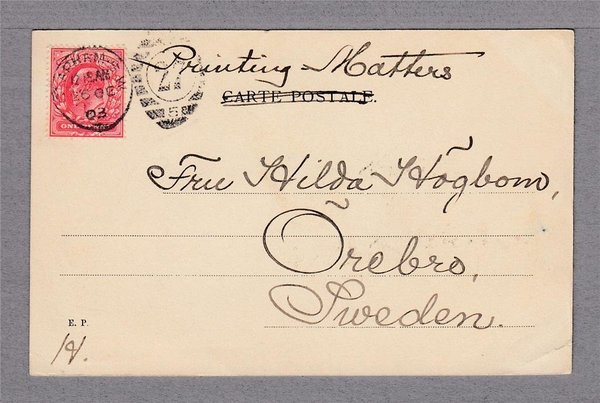 Printing Matters
CARTE POSTALE.
Fru Hilda Högbom,
Örebro,
Sweden.
E. P.
ONE PENNY
03